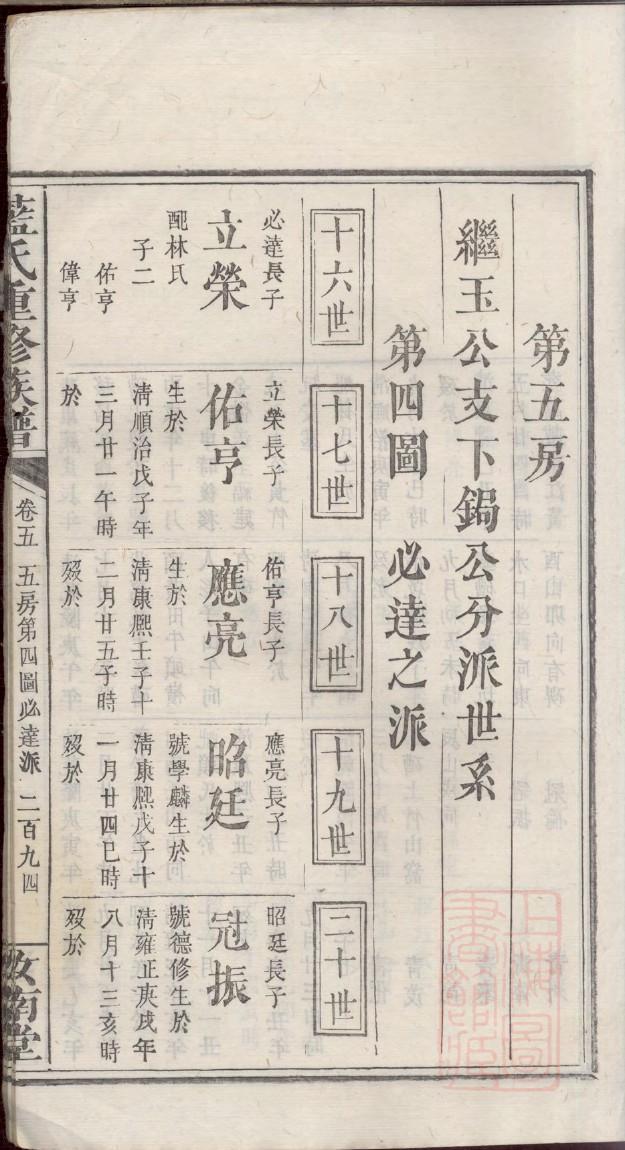 第五房
繼玉公支下鋦公分派世系
第四圖 必達之派
十六世
十七世
十八世
十九世
二十世
必達長子
立榮
配林氏
子二
佑亨
偉亨
立榮長子
佑亨
生於
清順治戊子年
三月廿一午時
於
佑亨長子
應亮
生於
清康熈壬子十
二月廿五子時
歿於
應亮長子
昭廷
號學麟生於
清康熈戊子十
一月廿四巳時
歿於
昭廷長子
冠振
號德修生於
清雍正庚戌年
八月十三亥時
歿於
藍氏重修族譜
卷五 五房第四圖必達派 二百九四
汝南堂